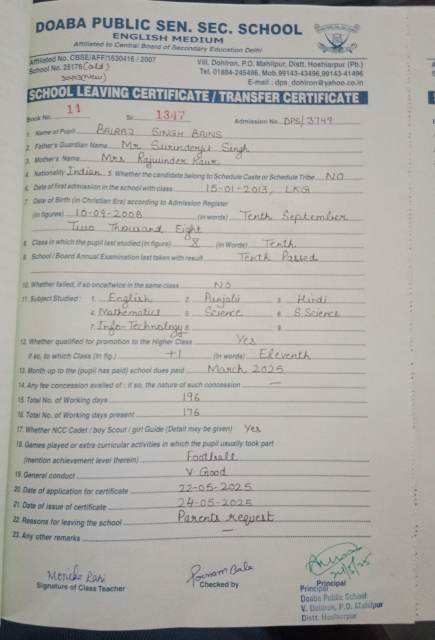 DOABA PUBLIC SEN. SEC. SCHOOL
ENGLISH MEDIUM
Affiliated to Central Board of Secondary Education Delhi
Affiliated No. CBSE/AFF/1630416 / 2007
School No. 28176 (old)
20443 (New)
Vill. Dohlron, P.O. Mahilpur, Distt. Hoshiarpur (Pb.)
Tel. 01884-245496, Mob.99143-43496,99143-41496
E-mail : dps_dohlron@yahoo.co.in
SCHOOL LEAVING CERTIFICATE / TRANSFER CERTIFICATE
Book No. 11 Sr. 1347 Admission No. DPS/3749
1. Name of Pupil BALRAJ SINGH BAINS
2. Father's Guardian Name Mr. Surinderjit Singh
3. Mother's Name Mrs Rajwinder Kaur
4. Nationality Indian 5. Whether the candidate belong to Schedule Caste or Schedule Tribe NO
6. Date of first admission in the school with class 15-01-2013, LKG
7. Date of Birth (in Christian Era) according to Admission Register
(in figures) 10-09-2008 (in words) Tenth September
Two Thousand Eight
8. Class in which the pupil last studied (in figure) X (in Words) Tenth
9. School / Board Annual Examination last taken with result Tenth Passed
10. Whether failed, if so once/twice in the same class NO
11. Subject Studied : 1. English 2. Punjabi 3. Hindi
4. Mathematics 5. Science 6. S.Science
7. Info-Technology 8. 9.
12. Whether qualified for promotion to the Higher Class Yes
if so, to which Class (in fig.) +1 (in words) Eleventh
13. Month up to the (pupil has paid) school dues paid March, 2025
14. Any fee concession availed of : if so, the nature of such concession —
15. Total No. of Working days 196
16. Total No. of Working days present 176
17. Whether NCC Cadet / boy Scout / girl Guide (Detail may be given) Yes
18. Games played or extra curricular activities in which the pupil usually took part
(mention achievement level therein) Football
19. General conduct V. Good
20. Date of application for certificate 22-05-2025
21. Date of issue of certificate 24-05-2025
22. Reasons for leaving the school Parents request
23. Any other remarks —
Monika Rani
Signature of Class Teacher
Poonam Bala
Checked by
Principal
Principal
Doaba Public School
V. Dohlron, P.O. Mahilpur
Distt. Hoshiarpur